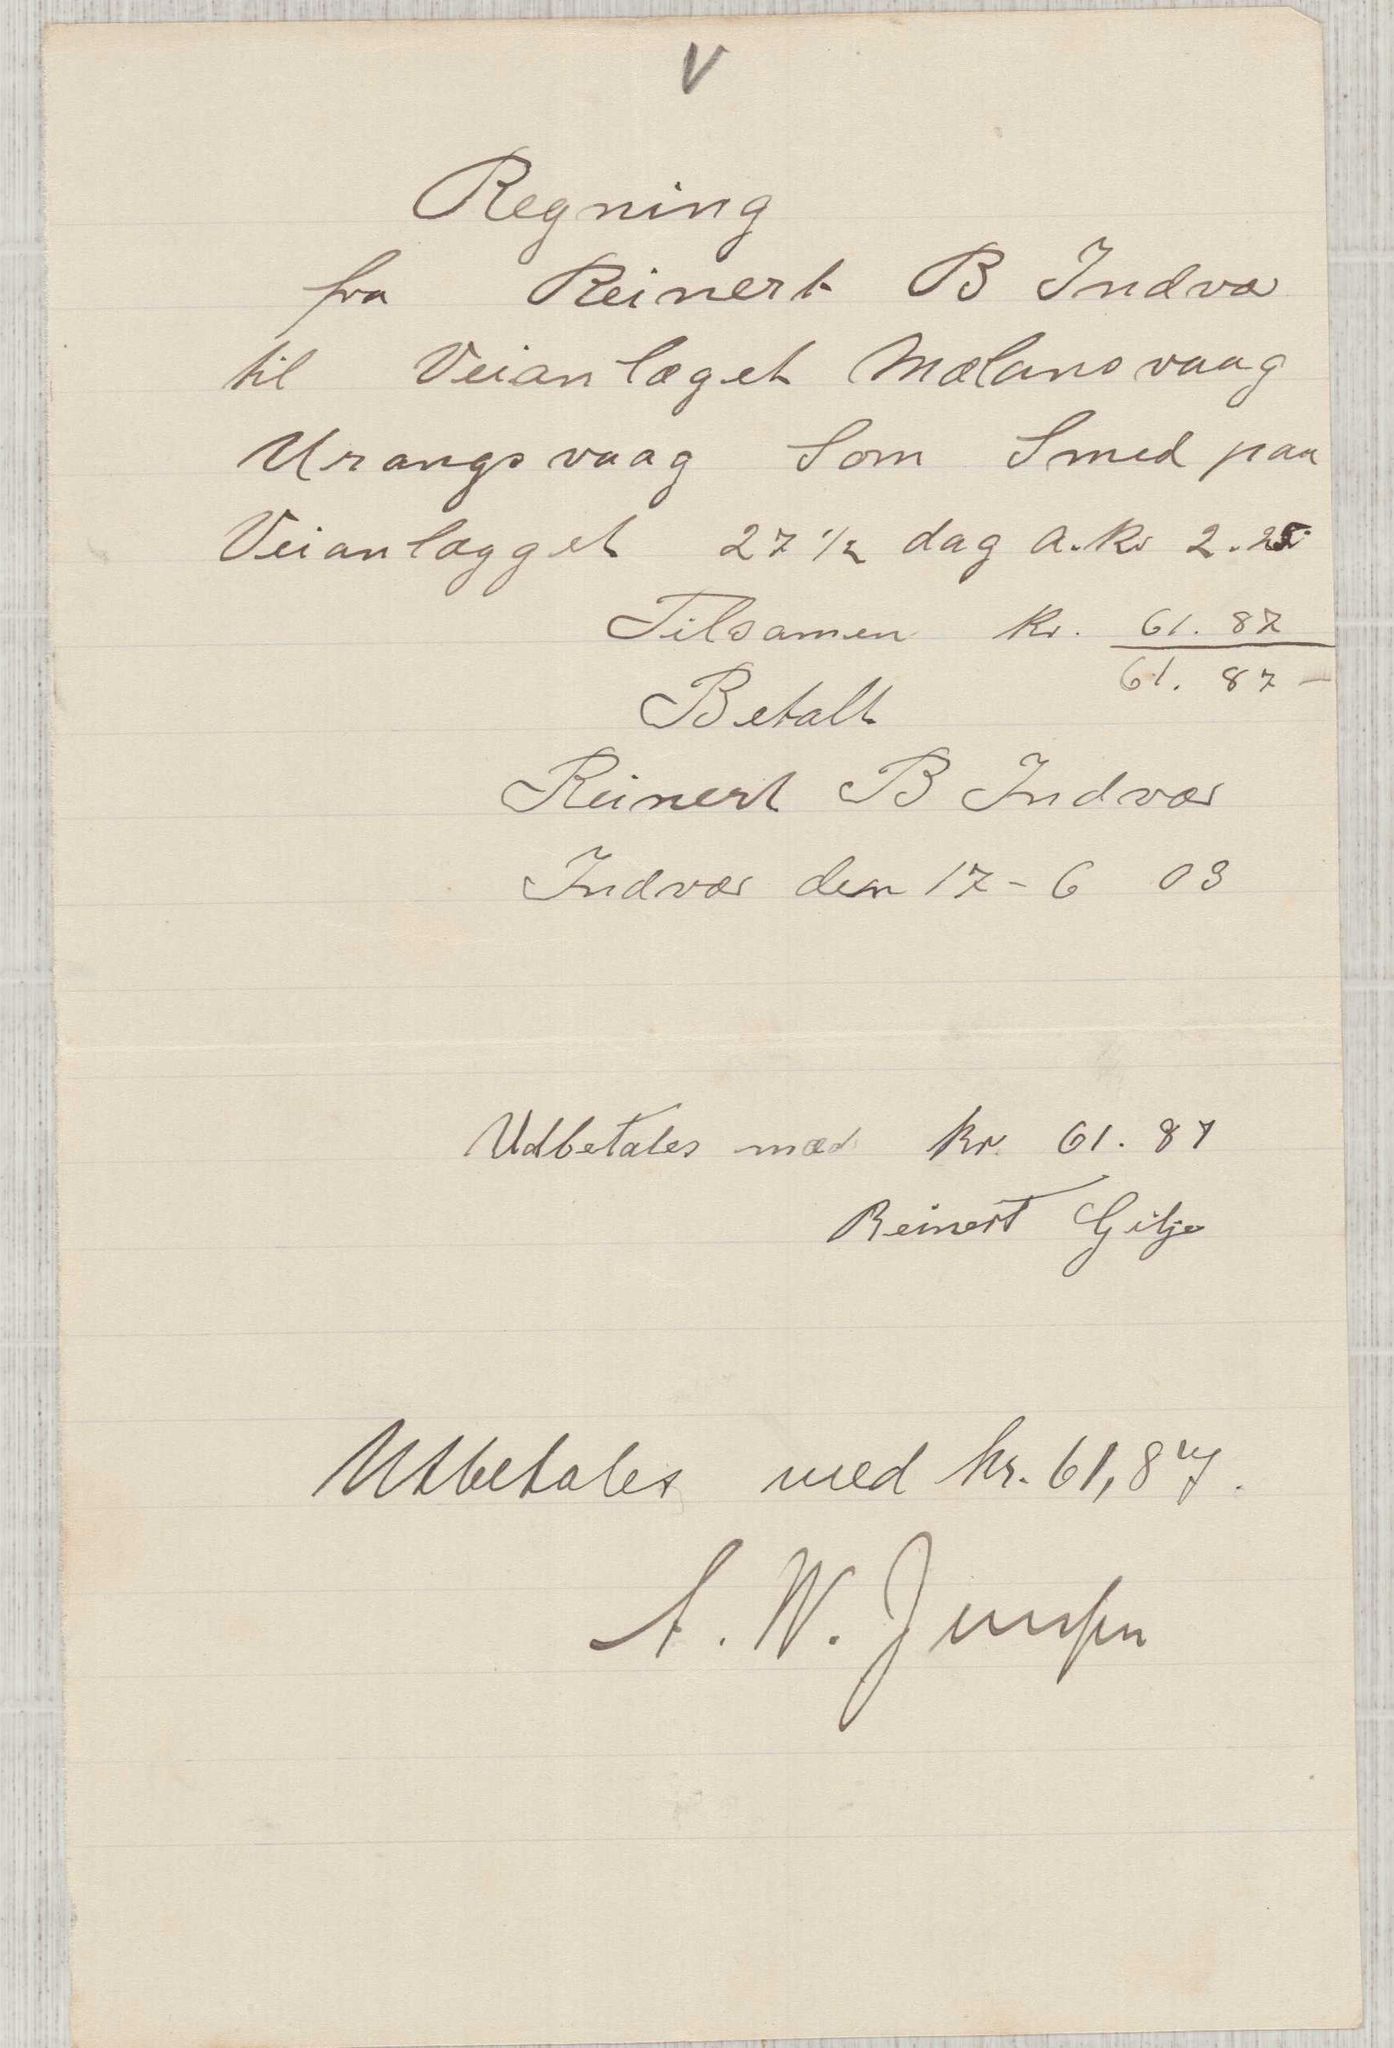 V
Regning
fra Reinert B Indvær
til Veianlæget Mælansvaag
Urangsvaag Som Smed paa
Veianlægget 27 1/2 dag a. kr 2.25
Tilsamen kr. 61.87
61.87 -
Betalt
Reinert B Indvær
Indvær den 17-6 03
Udbetales med kr. 61.87
Reinert Gilje
Utbetales med kr. 61,87.
A. W. Jensen